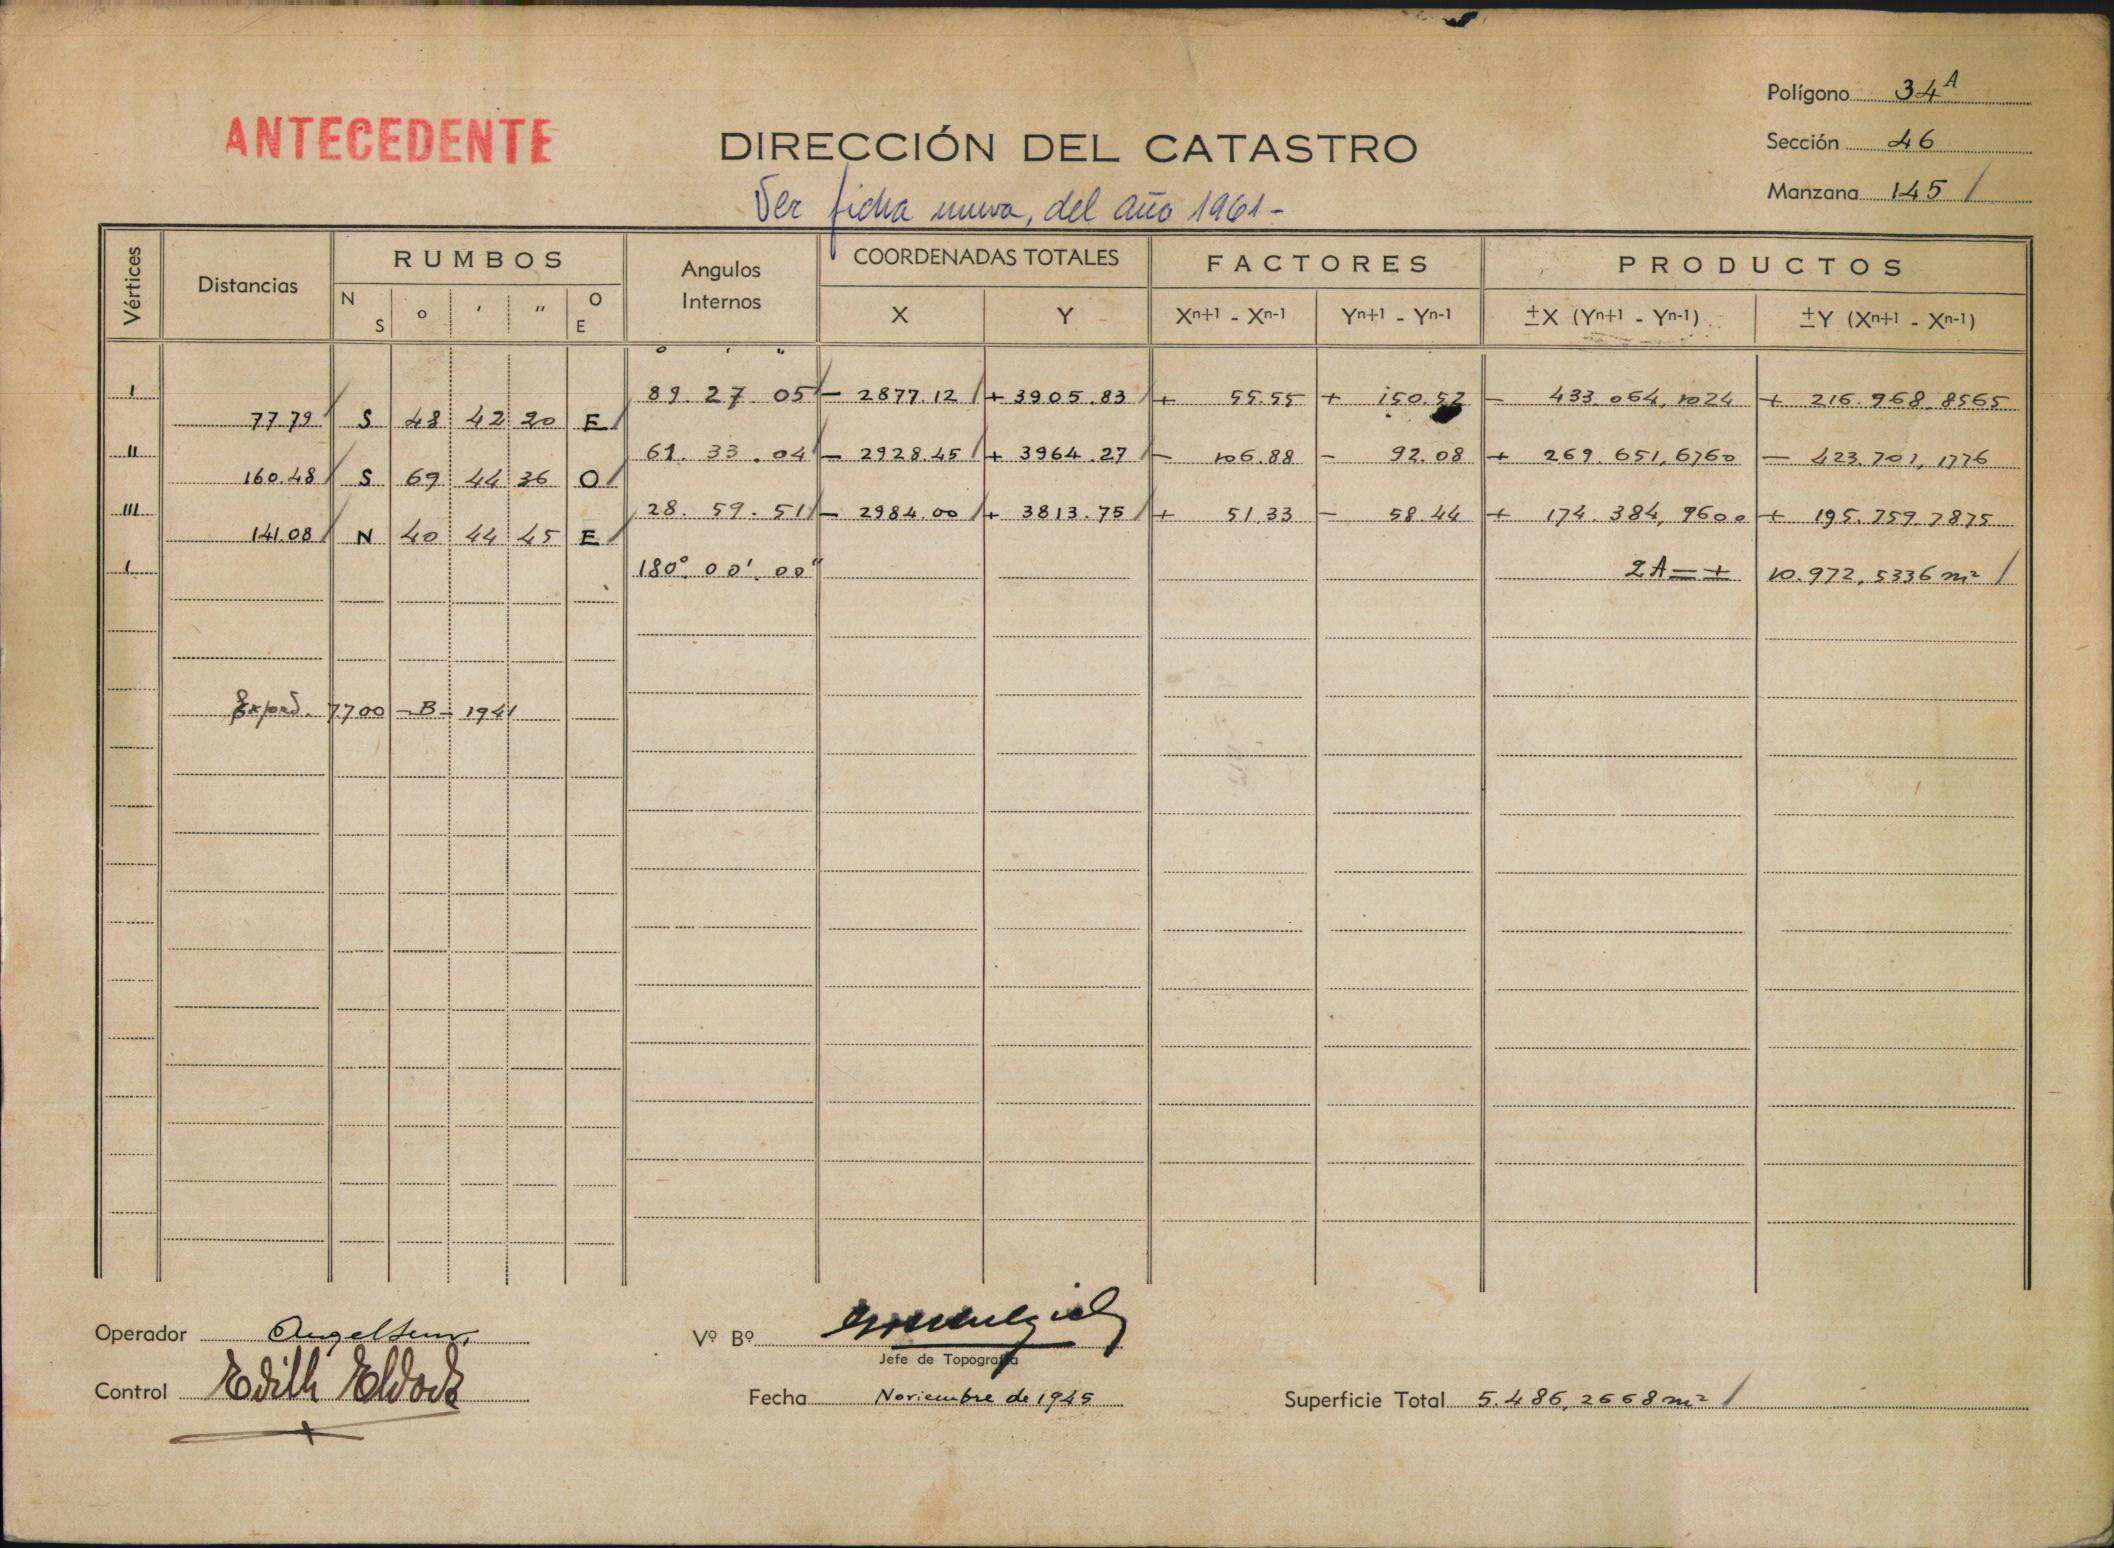 Polígono 34A
ANTECEDENTE
DIRECCIÓN DEL CATASTRO
Sección 46
Manzana 145 /
Ver ficha nueva, del año 1961-
Vértices Distancias RUMBOS Angulos Internos COORDENADAS TOTALES FACTORES PRODUCTOS
N S o ' " O E X Y Xn+1 - Xn-1 Yn+1 - Yn-1 ±X (Yn+1 - Yn-1) ±Y (Xn+1 - Xn-1)
o ' "
I 89. 27. 05 / - 2877.12 / + 3905.83 / + 55.55 + 150.52 - 433.064,1024 + 216.968.8565
77.79 / S 48 42 20 E /
II 61. 33. 04 / - 2928.45 / + 3964.27 / - 106.88 - 92.08 + 269.651,6760 - 423.701,1776
160.48 / S 69 44 36 O /
III 28. 59. 51 / - 2984.00 / + 3813.75 / + 51.33 - 58.44 + 174.384,9600 + 195.759.7875
141.08 / N 40 44 45 E /
I 180° 00' 00" 2A = + 10.972,5336 m² /
Exped. 7700 - B - 1941
Operador
Vº Bº
Jefe de Topografía
Control Edith
Fecha Noviembre de 1945
Superficie Total 5.486,2668 m² /